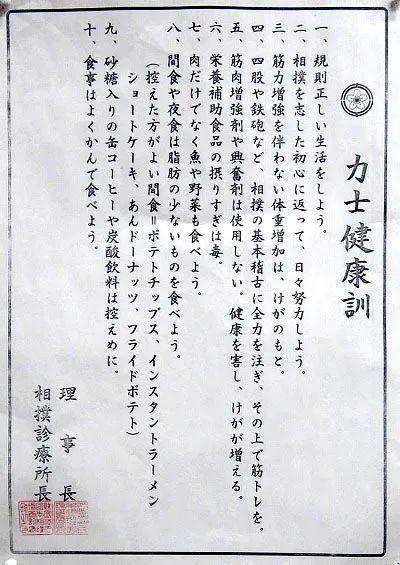 力士健康訓
一、規則正しい生活をしよう。
二、相撲を志した初心に返って、日々努力しよう。
三、筋力増強を伴わない体重増加は、けがのもと。
四、四股や鉄砲など、相撲の基本稽古に全力を注ぎ、その上で筋トレを。
五、筋肉増強剤や興奮剤は使用しない。健康を害し、けがが増える。
六、栄養補助食品の摂りすぎは毒。
七、肉だけでなく魚や野菜も食べよう。
八、間食や夜食は脂肪の少ないものを食べよう。
（控えた方がよい間食＝ポテトチップス、インスタントラーメン
ショートケーキ、あんドーナッツ、フライドポテト）
九、砂糖入りの缶コーヒーや炭酸飲料は控えめに。
十、食事はよくかんで食べよう。
理事長
相撲診療所長